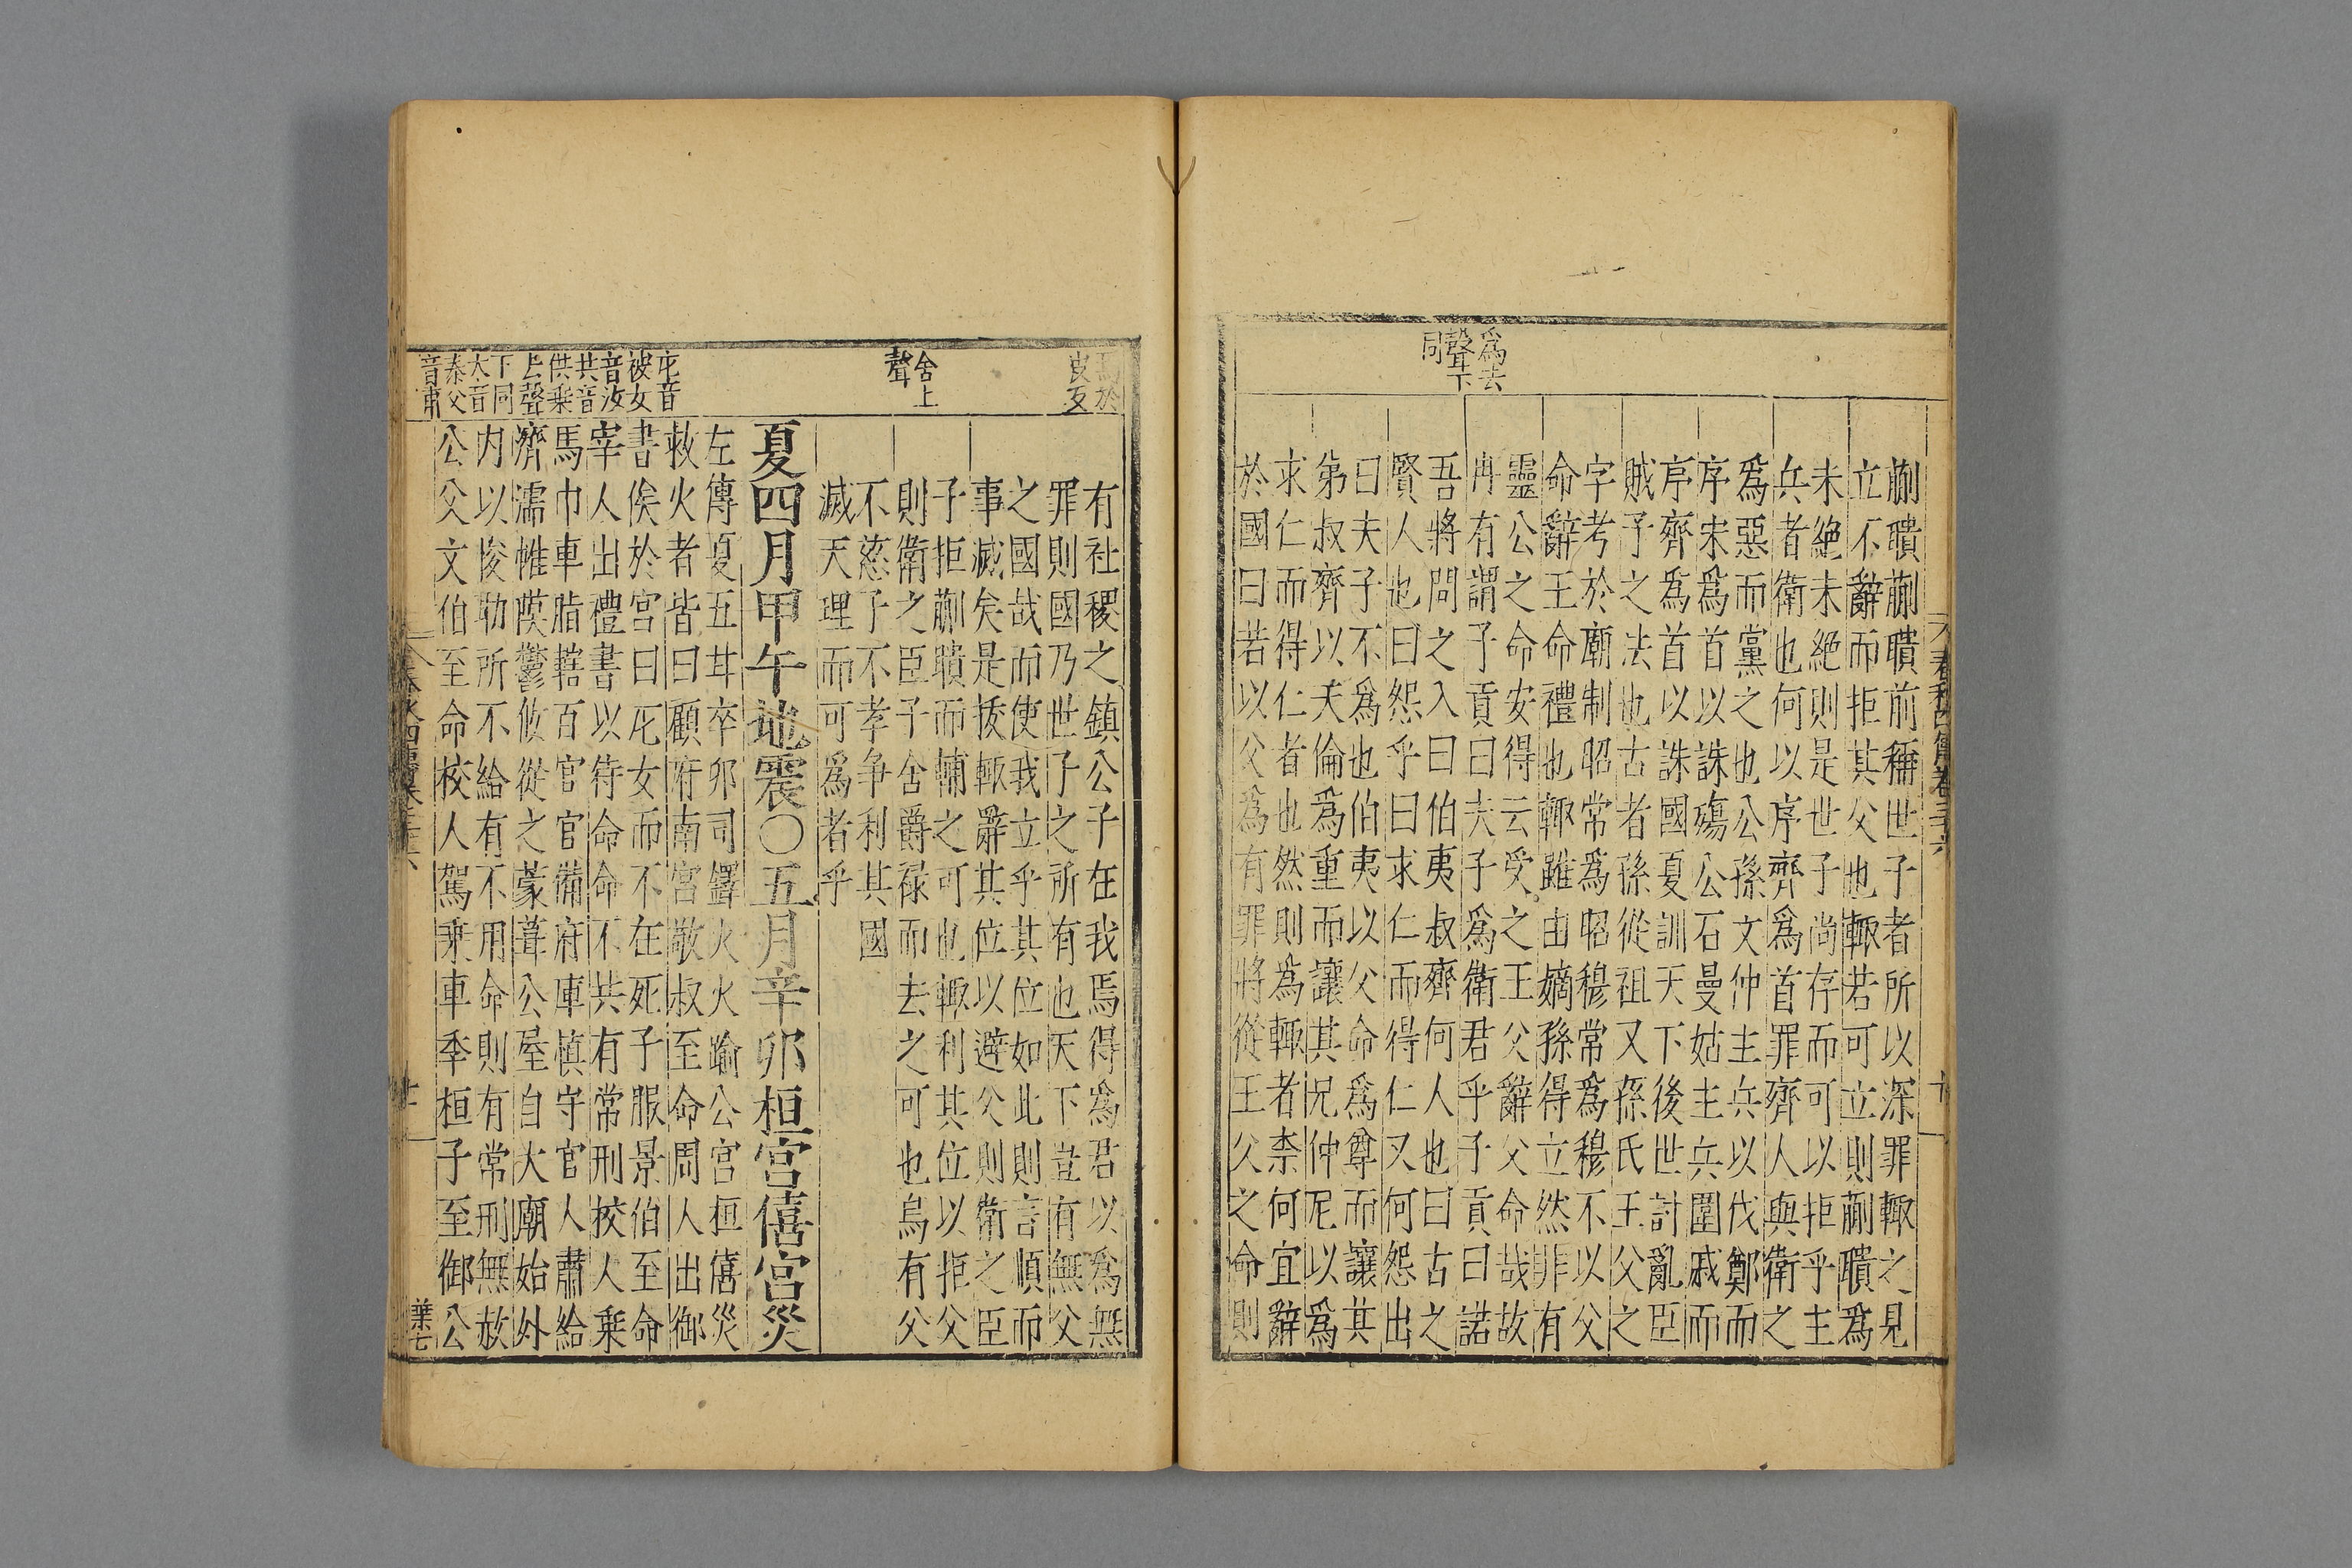 爲去
聲下
同
蒯聵蒯聵前稱世子者所以深罪輒之見
立不辭而拒其父也輒若可立則蒯聵爲
未絕未絕則是世子尚存而可以拒乎主
兵者衛也何以序齊爲首罪齊人與衛之
爲惡而黨之也公孫文仲主兵以伐鄭而
序宋爲首以誅殤公石曼姑主兵圍戚而
序齊爲首以誅國夏訓天下後世討亂臣
賊子之法也古者孫從祖又孫氏王父之
字考於廟制昭常爲昭穆常爲穆不以父
命辭王命禮也輒雖由嫡孫得立然非有
靈公之命安得云受之王父辭父命哉故
冉有謂子貢曰夫子爲衛君乎子貢曰諾
吾將問之入曰伯夷叔齊何人也曰古之
賢人也曰怨乎曰求仁而得仁又何怨出
曰夫子不爲也伯夷以父命爲尊而讓其
弟叔齊以天倫爲重而讓其兄仲尼以爲
求仁而得仁者也然則爲輒者柰何宜辭
於國曰若以父爲有罪將從王父之命則
焉於
䖍反
有社稷之鎮公子在我焉得爲君以爲無
罪則國乃世子之所有也天下豈有無父
之國哉而使我立乎其位如此則言順而
事滅矣是故輒辭其位以避父則衛之臣
子拒蒯聵而輔之可也輒利其位以拒父
則衛之臣子舍爵祿而去之可也烏有父
不慈子不孝爭利其國
滅天理而可爲者乎
舍上
聲
夏四月甲午地震〇五月辛卯桓宮僖宮災
庀音
被女
音汝
共音
供乘
去聲
下同
大音
泰父
音甫
左傳夏五月辛卯司鐸火火踰公宮桓僖災
救火者皆曰顧府南宮敬叔至命周人出御
書俟於宮曰庀女而不在死子服景伯至命
宰人出禮書以待命命不共有常刑校人乘
馬巾車脂轄百官官備府庫慎守官人肅給
濟濡帷幕鬱攸從之蒙葺公屋自大廟始外
内以悛勒所不給有不用命則有常刑無赦
公父文伯至命校人駕乘車季桓子至御公